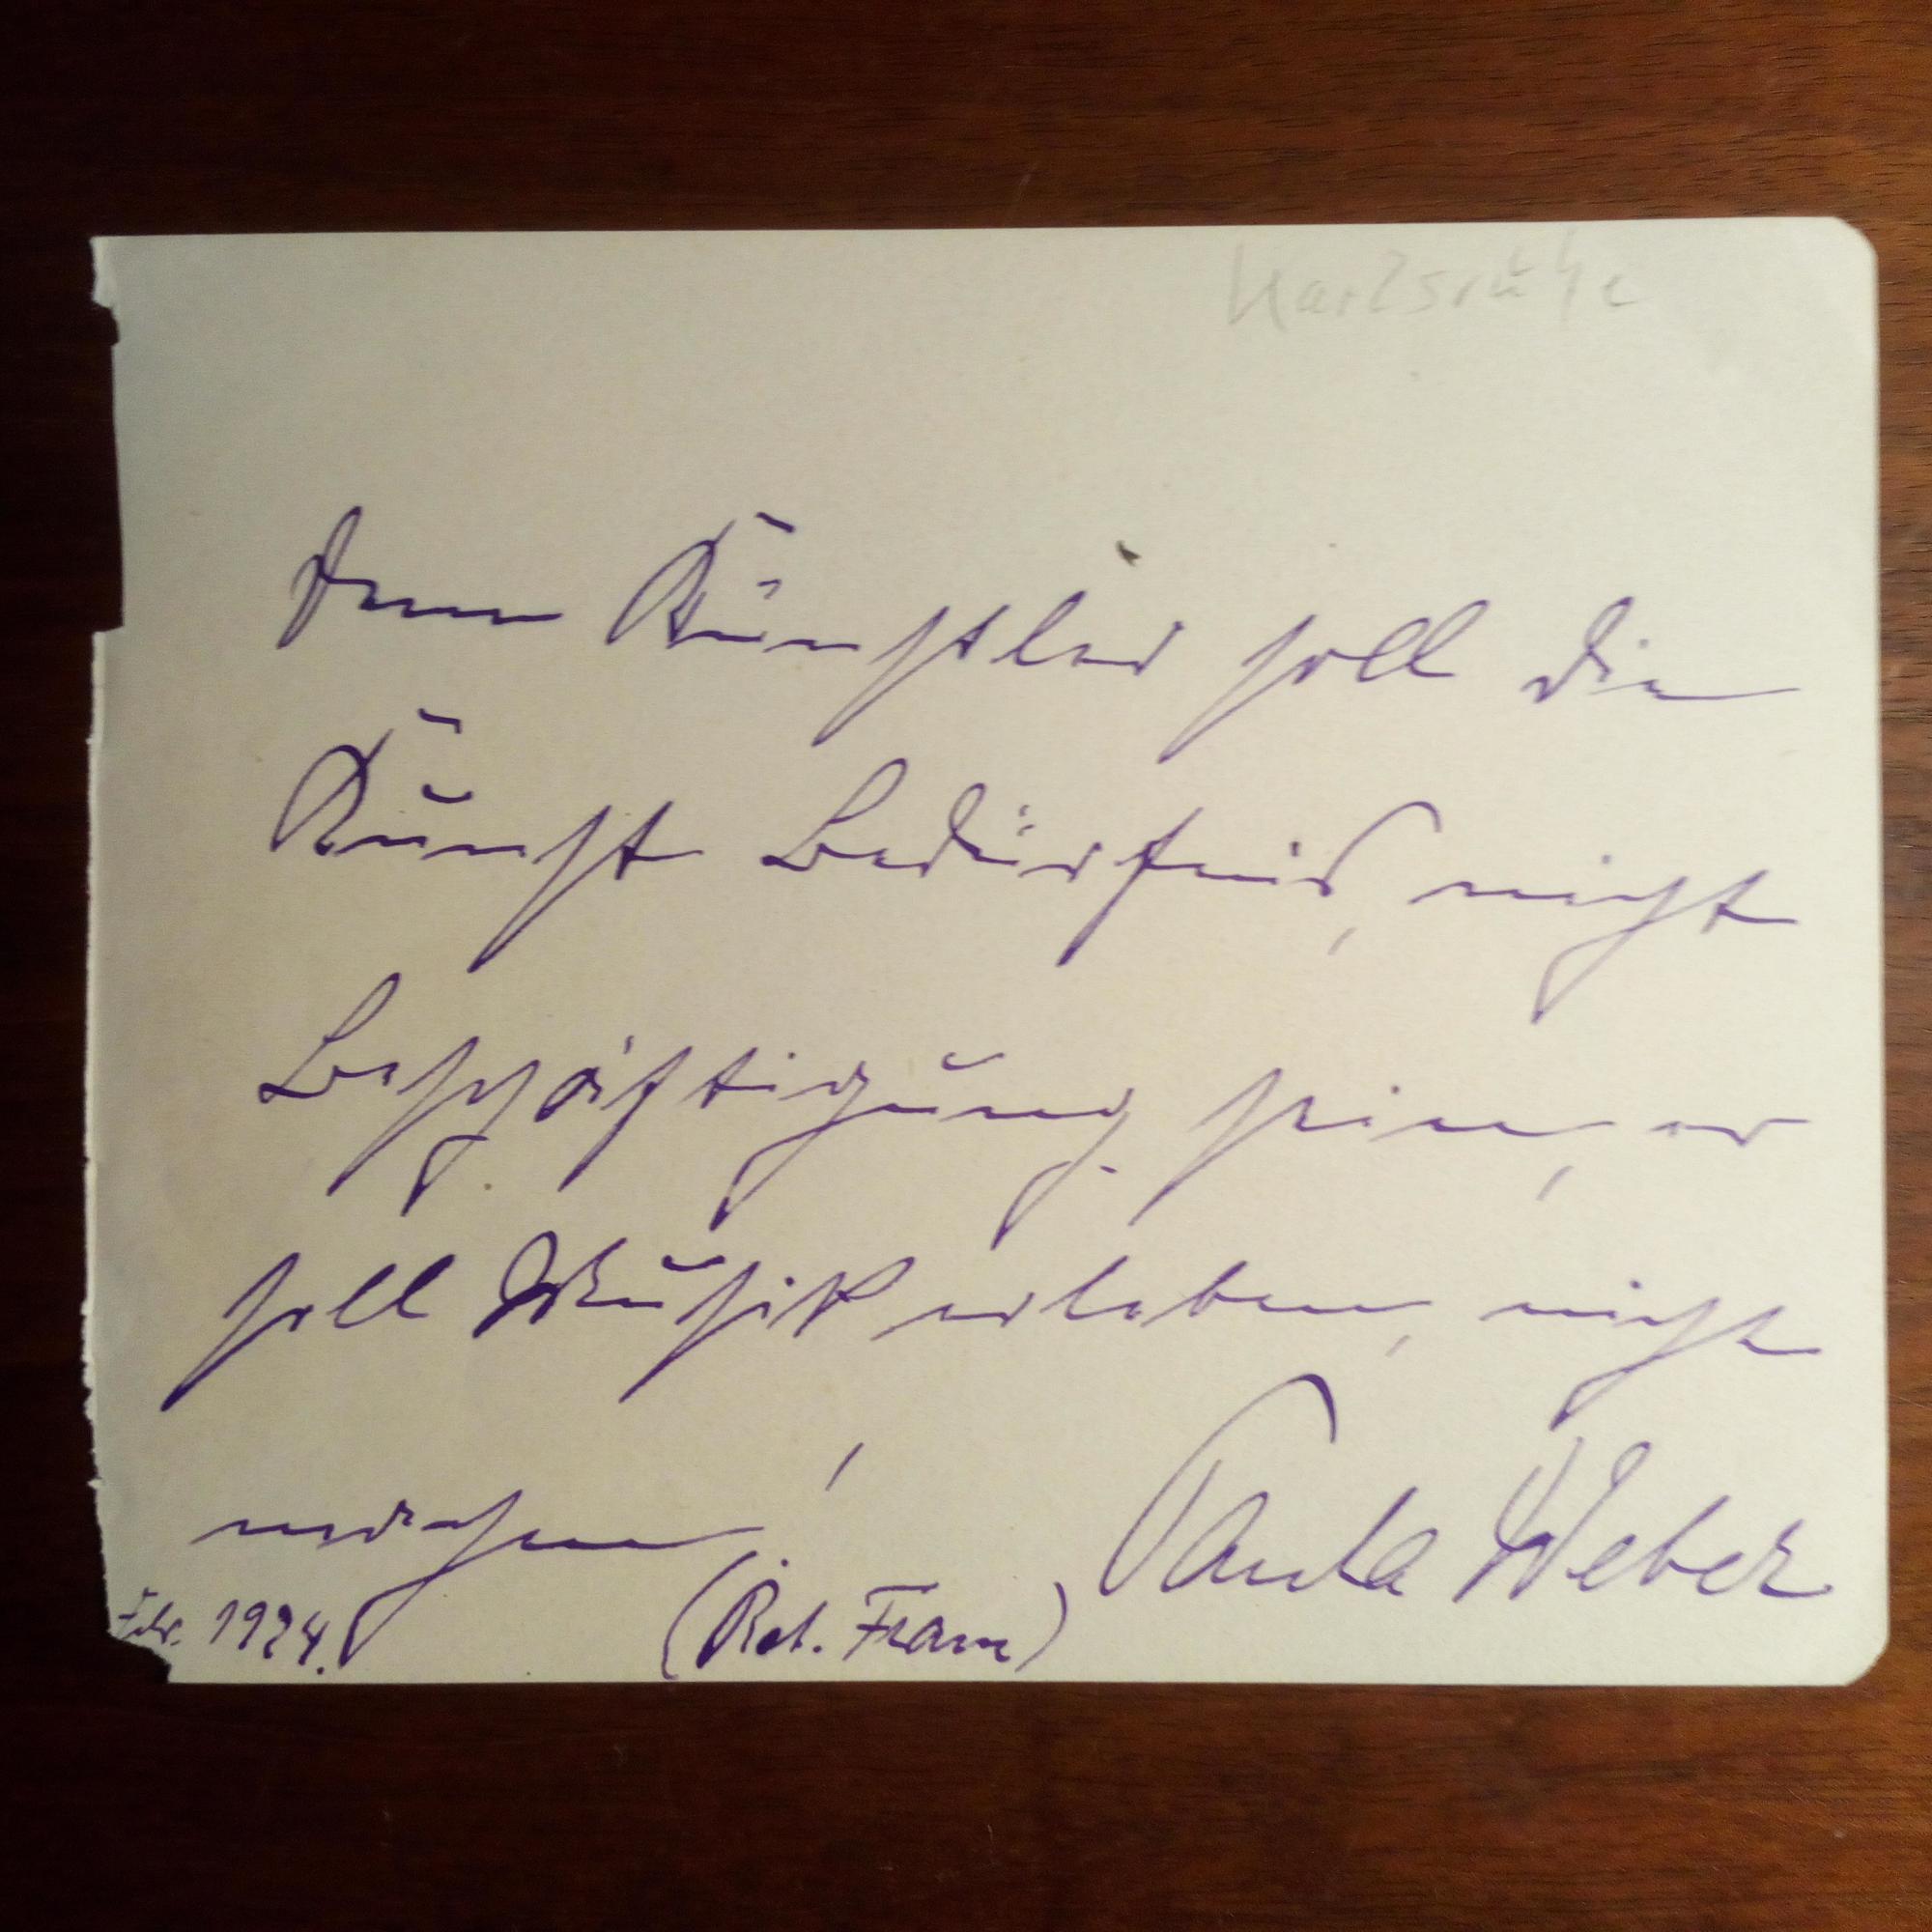 Karlsruhe
Dem Künstler soll die
Kunst Bedürfnis, nicht
Beschäftigung sein, er
soll Musik erleben, nicht
machen!
Paula Weber
Febr. 1924. (Rob. Franz)